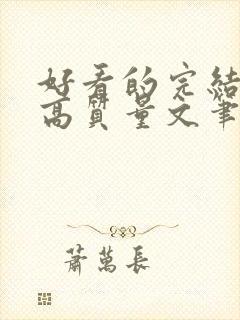 好看的完結
高質量文筆
蕭萬長